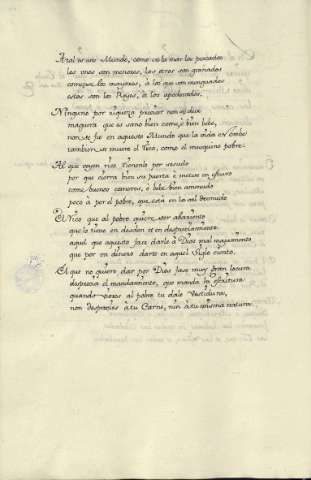 Atal es este Mundo, como es la mar los pescados
los unos son menores, los otros son granados
comense los mayores, à los que son menguados
estos son los Reyes, è los apoderados.
Ninguno por riqueza precier non se due
maguera que es sano bien come, è bien bebe,
non se fie en aqueste Mundo que la vida es breve
tambien se muere el Rico, como el mesquino pobre.
Al que tocan ricos tienenlo por sesudo
por que cierra bien su puerta è metese en
come buenos carneros, è bebe bien amenudo
poco à por el pobre, que està en la cal desnudo
El Rico que al pobre quiere ser
que lo tiene en desden è en despreciamiento
aquel que aquesto face darle à Dios mal pagamiento
que por un dinero darte en aquel Siglo ciento.
El que no quiere dar por Dios face muy gran locura
desprecia el mandamiento, que manda la escritura
quando vieres al pobre tu dale Vestidura,
non desprecies à tu Carne, nin à tu misma natura.